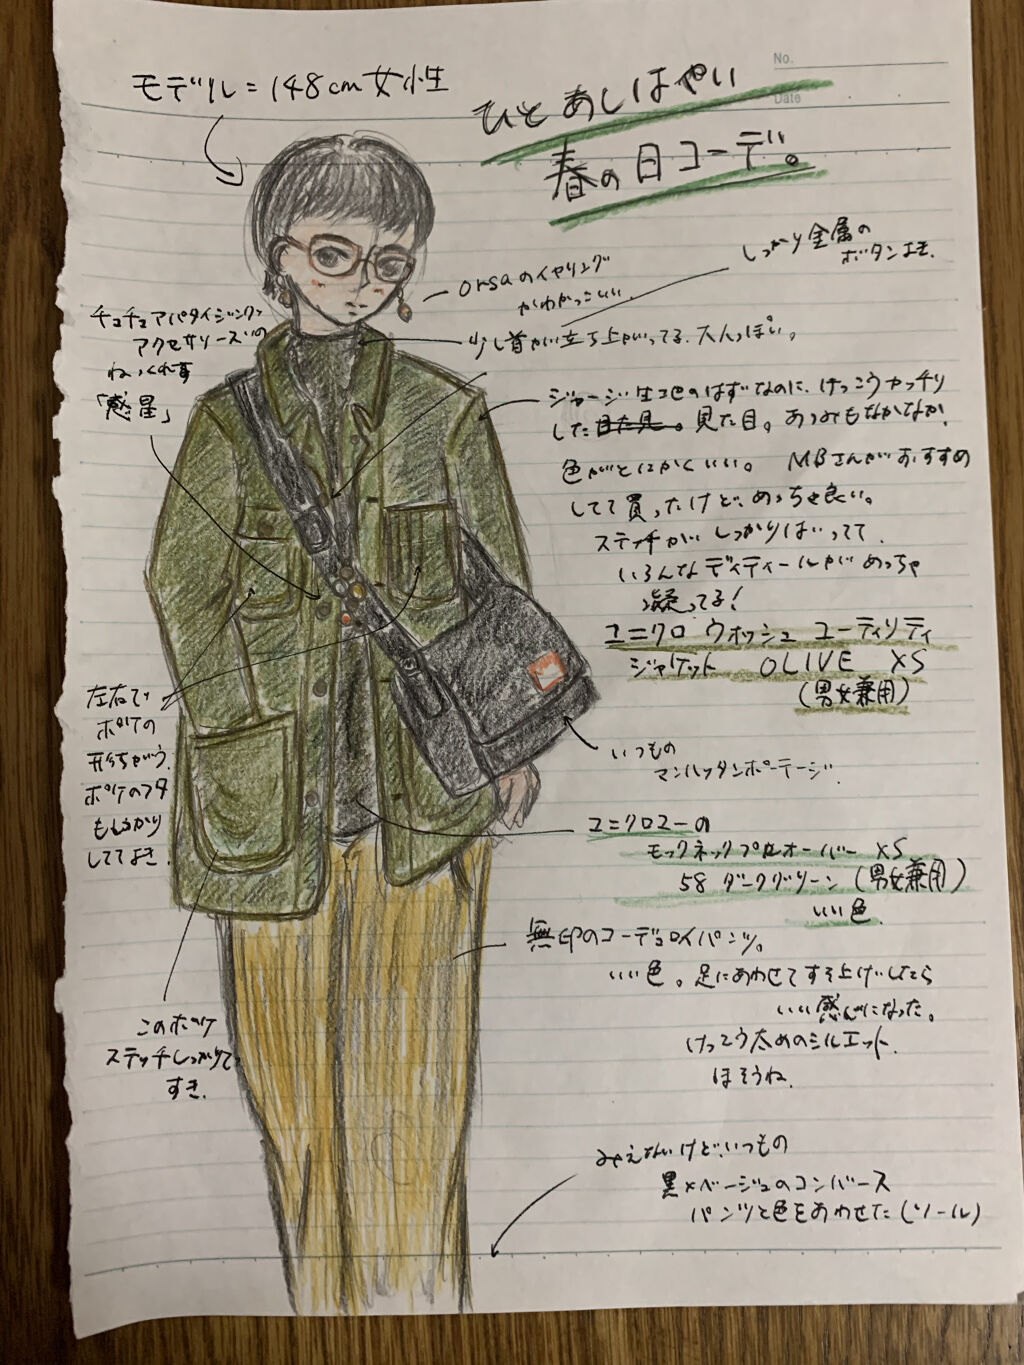 No.
Date
モデル=148cm女性
ひとあしはやい
春の日コーデ。
しっかり金属の
ボタンよき.
orsaのイヤリング
かわかっこいい.
少し首が立ち上がってる.大人っぽい。
チュチュアパタイジング
アクセサリーズの
ねっくれす
「惑星」
ジャージ生地のはずなのに、けっこうカッチリ
した 見た目。あつみもなかなか.
色がとにかくいい。 MBさんがおすすめ
してて買ったけど、めっちゃ良い。
ステッチがしっかりはいってて
いろんなディティールがめっちゃ
凝ってる!
ユニクロ ウォッシュ ユーティリティ
ジャケット OLIVE XS
(男女兼用)
左右で
ポケの
形ちがう.
ポケのフタ
もしっかり
しててよき.
いつもの
マンハッタンポーテージ.
ユニクロユーの
モックネックプルオーバー XS
58 ダークグリーン (男女兼用)
いい色.
無印のコーデュロイパンツ。
いい色。足にあわせてすそ上げしたら
いい感じになった。
けっこう太めのシルエット.
ほそうね.
このポッケ
ステッチしっかりで
すき.
みえないけど、いつもの
黒×ベージュのコンバース
パンツと色をあわせた(ソール)